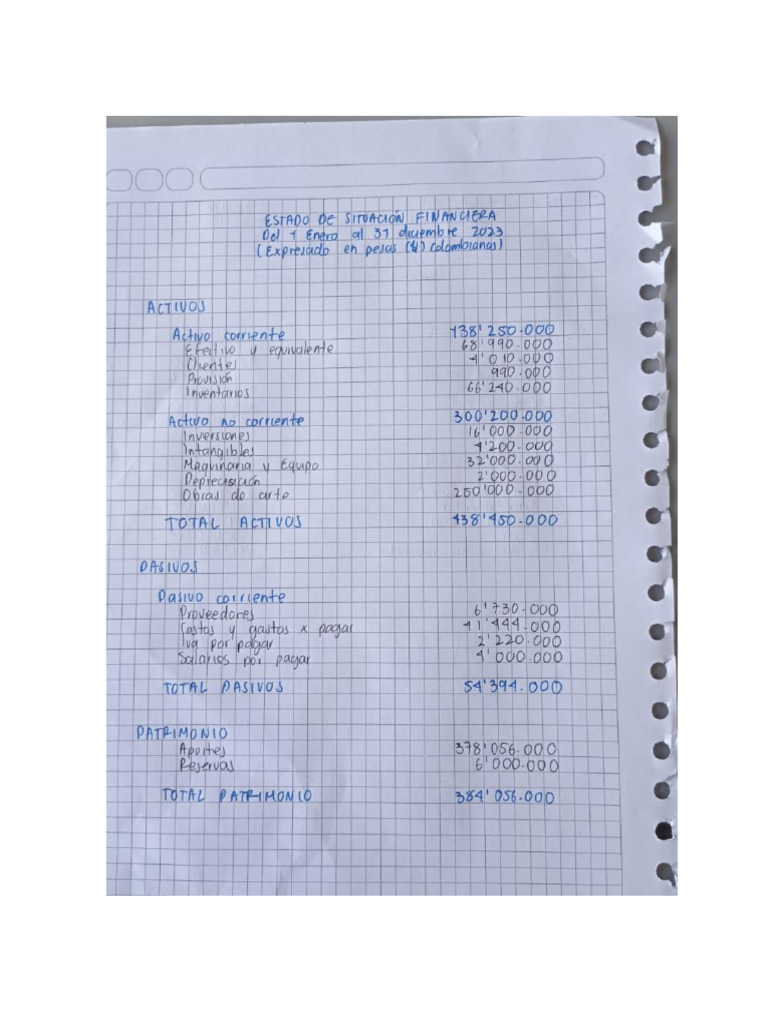 ESTADO DE SITUACIÓN FINANCIERA
Del 1 Enero al 31 diciembre 2023
(Expresado en pesos ($) Colombianos)
ACTIVOS
Activo corriente 138'250.000
Efectivo y equivalente 68'990.000
Clientes 4'010.000
Provisión 990.000
Inventarios 66'240.000
Activo no corriente 300'200.000
Inversiones 16'000.000
Intangibles 4'200.000
Maquinaria y Equipo 32'000.000
Depreciación 2'000.000
Obras de arte 250'000.000
TOTAL ACTIVOS 438'450.000
PASIVOS
Pasivo corriente
Proveedores 6'730.000
Costos y gastos x pagar 41'444.000
Iva por pagar 2'220.000
Salarios por pagar 4'000.000
TOTAL PASIVOS 54'394.000
PATRIMONIO
Aportes 378'056.000
Reservas 6'000.000
TOTAL PATRIMONIO 384'056.000